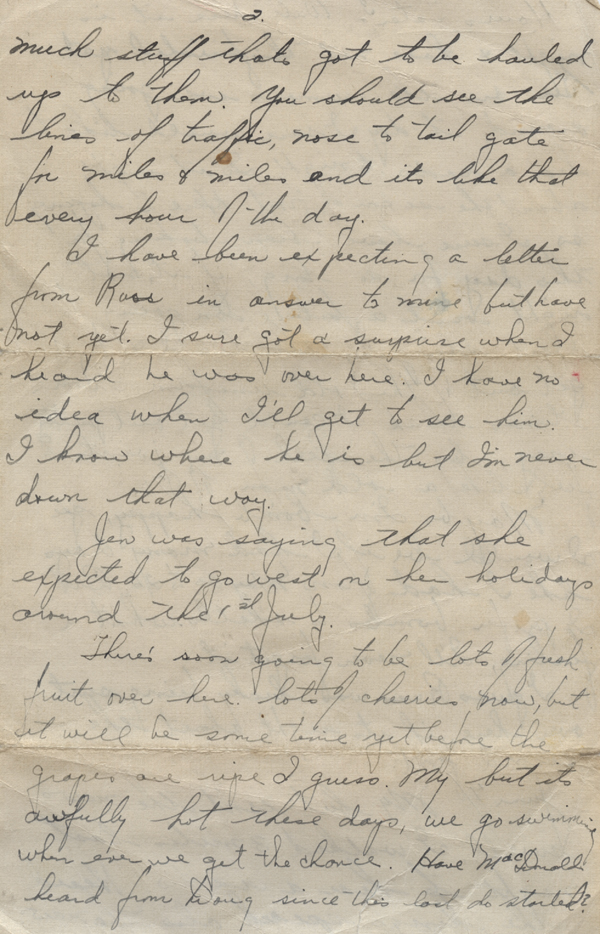 2.
much stuff thats got to be hauled
up to them. You should see the
lines of traffic, nose to tail gate
for miles & miles and its like that
every hour of the day.
I have been expecting a letter
from Russ in answer to mine but have
not yet. I sure got a surprise when I
heard he was over here. I have no
idea when I'll get to see him.
I know where he is but I'm never
down that way.
Jen was saying that she
expected to go west on her holidays
around the 1st July.
There's soon going to be lots of fresh
fruit over here. lots of cheeries now, but
it will be some time yet before the
grapes are ripe I guess. My but its
awfully hot these days, we go swimming
when ever we get the chance. Have MacDonalds
heard from Doug since this last do started?